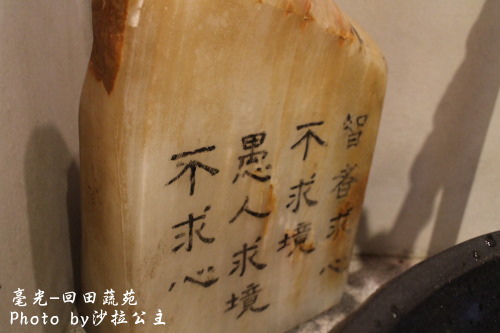 智者求心
不求境
愚人求境
不求心
毫光-回田蔬苑
Photo by沙拉公主